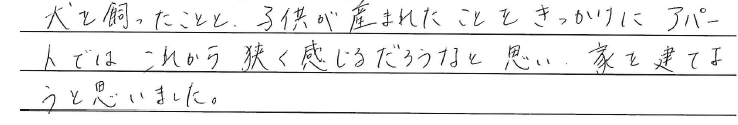 犬を飼ったことと、子供が産まれたことをきっかけにアパー
トではこれから狭く感じるだろうなと思い、家を建てよ
うと思いました。